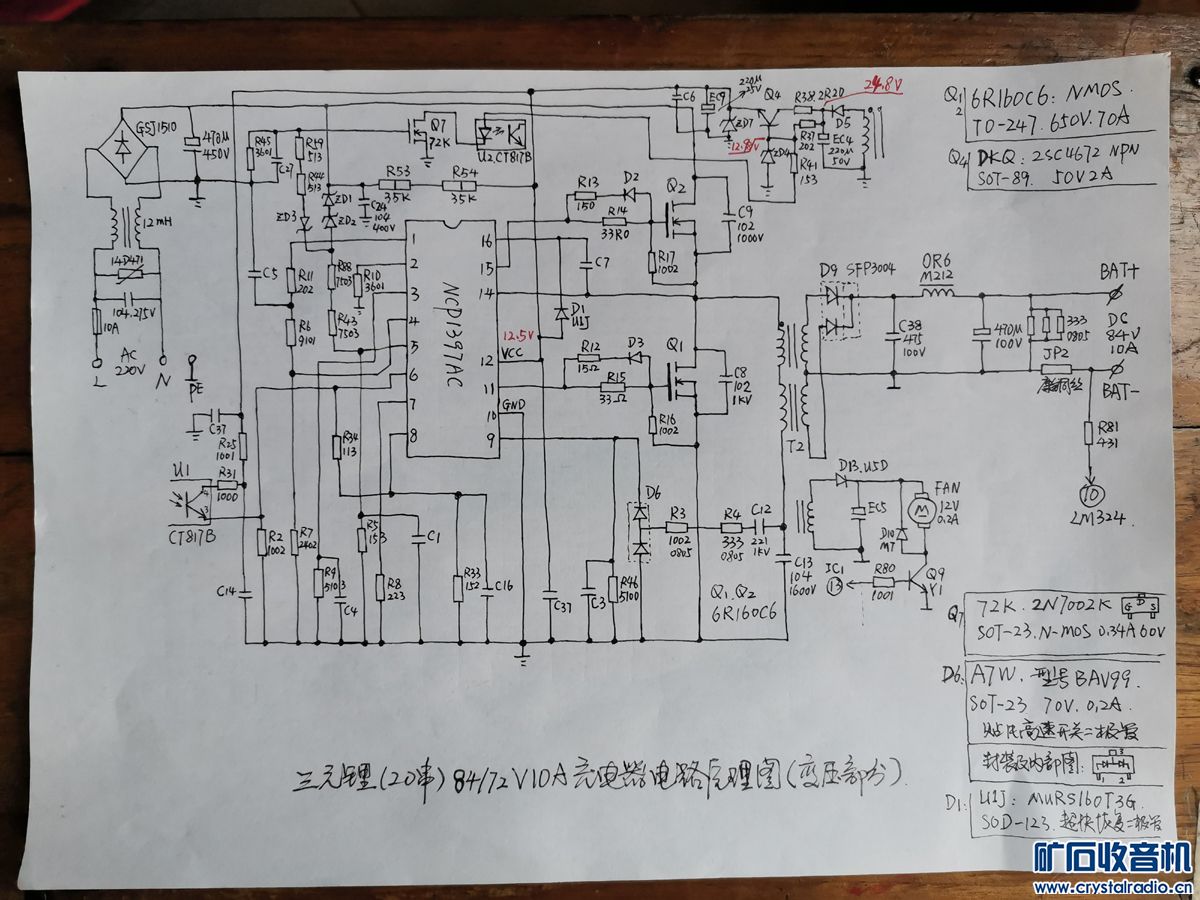 GSJ1510
470μ
450V
12mH
14D471
104.275V
10A
L
AC
220V
N
PE
R45
3601
C27
R49
513
R44
513
ZD3
ZD1
ZD2
C24
104
400V
Q7
72K
U2 CT817B
R53
35K
R54
35K
C6
EC9
220μ
25V
ZD7
Q4
12.8V
ZD4
R38.2R20
R37
202
R41
153
24.8V
D5
EC4
220μ
50V
Q1
2
6R160C6: NMOS.
TO-247. 650V. 70A
Q4
DKQ: 2SC4672 NPN
SOT-89. 50V 2A
C5
R11
202
R6
9101
R88
7503
R43
7503
R10
3601
1
2
3
4
5
6
7
8
NCP1397AC
16
15
14
12
11
10
9
12.5V
VCC
GND
R13
150
D2
R14
33R0
Q2
C9
102
1000V
R17
1002
C7
D1
U1J
R12
15Ω
D3
R15
33Ω
Q1
C8
102
1KV
R16
1002
T2
D9 SFP3004
OR6
M212
C38
475
100V
470μ
100V
333
0805
JP2
康铜丝
BAT+
DC
84V
10A
BAT-
R81
431
10
LM324
C37
R25
1001
R31
1000
U1
4
3
CT817B
C14
R2
1002
R7
2402
R34
113
R9
5103
C4
R5
153
R8
223
C1
R33
152
C16
C37
C3
R46
5100
D6
R3
1002
0805
R4
333
0805
C12
221
1KV
C13
104
1600V
Q1.Q2
6R160C6
D13.U5D
EC5
FAN
12V
0.2A
M
D10
M7
IC1
13
R80
1001
Q9
Y1
Q7
72K. 2N7002K
G D S
SOT-23.N-MOS 0.34A 60V
D6:
A7W. 型号BAV99.
SOT-23 70V. 0.2A.
贴片高速开关二极管
封装及内部图:
3
1 2
D1:
U1J: MURS160T3G.
SOD-123. 超快恢复二极管
三元锂(20串)84/72V10A充电器电路原理图(变压部分).
矿石收音机
www.crystalradio.cn